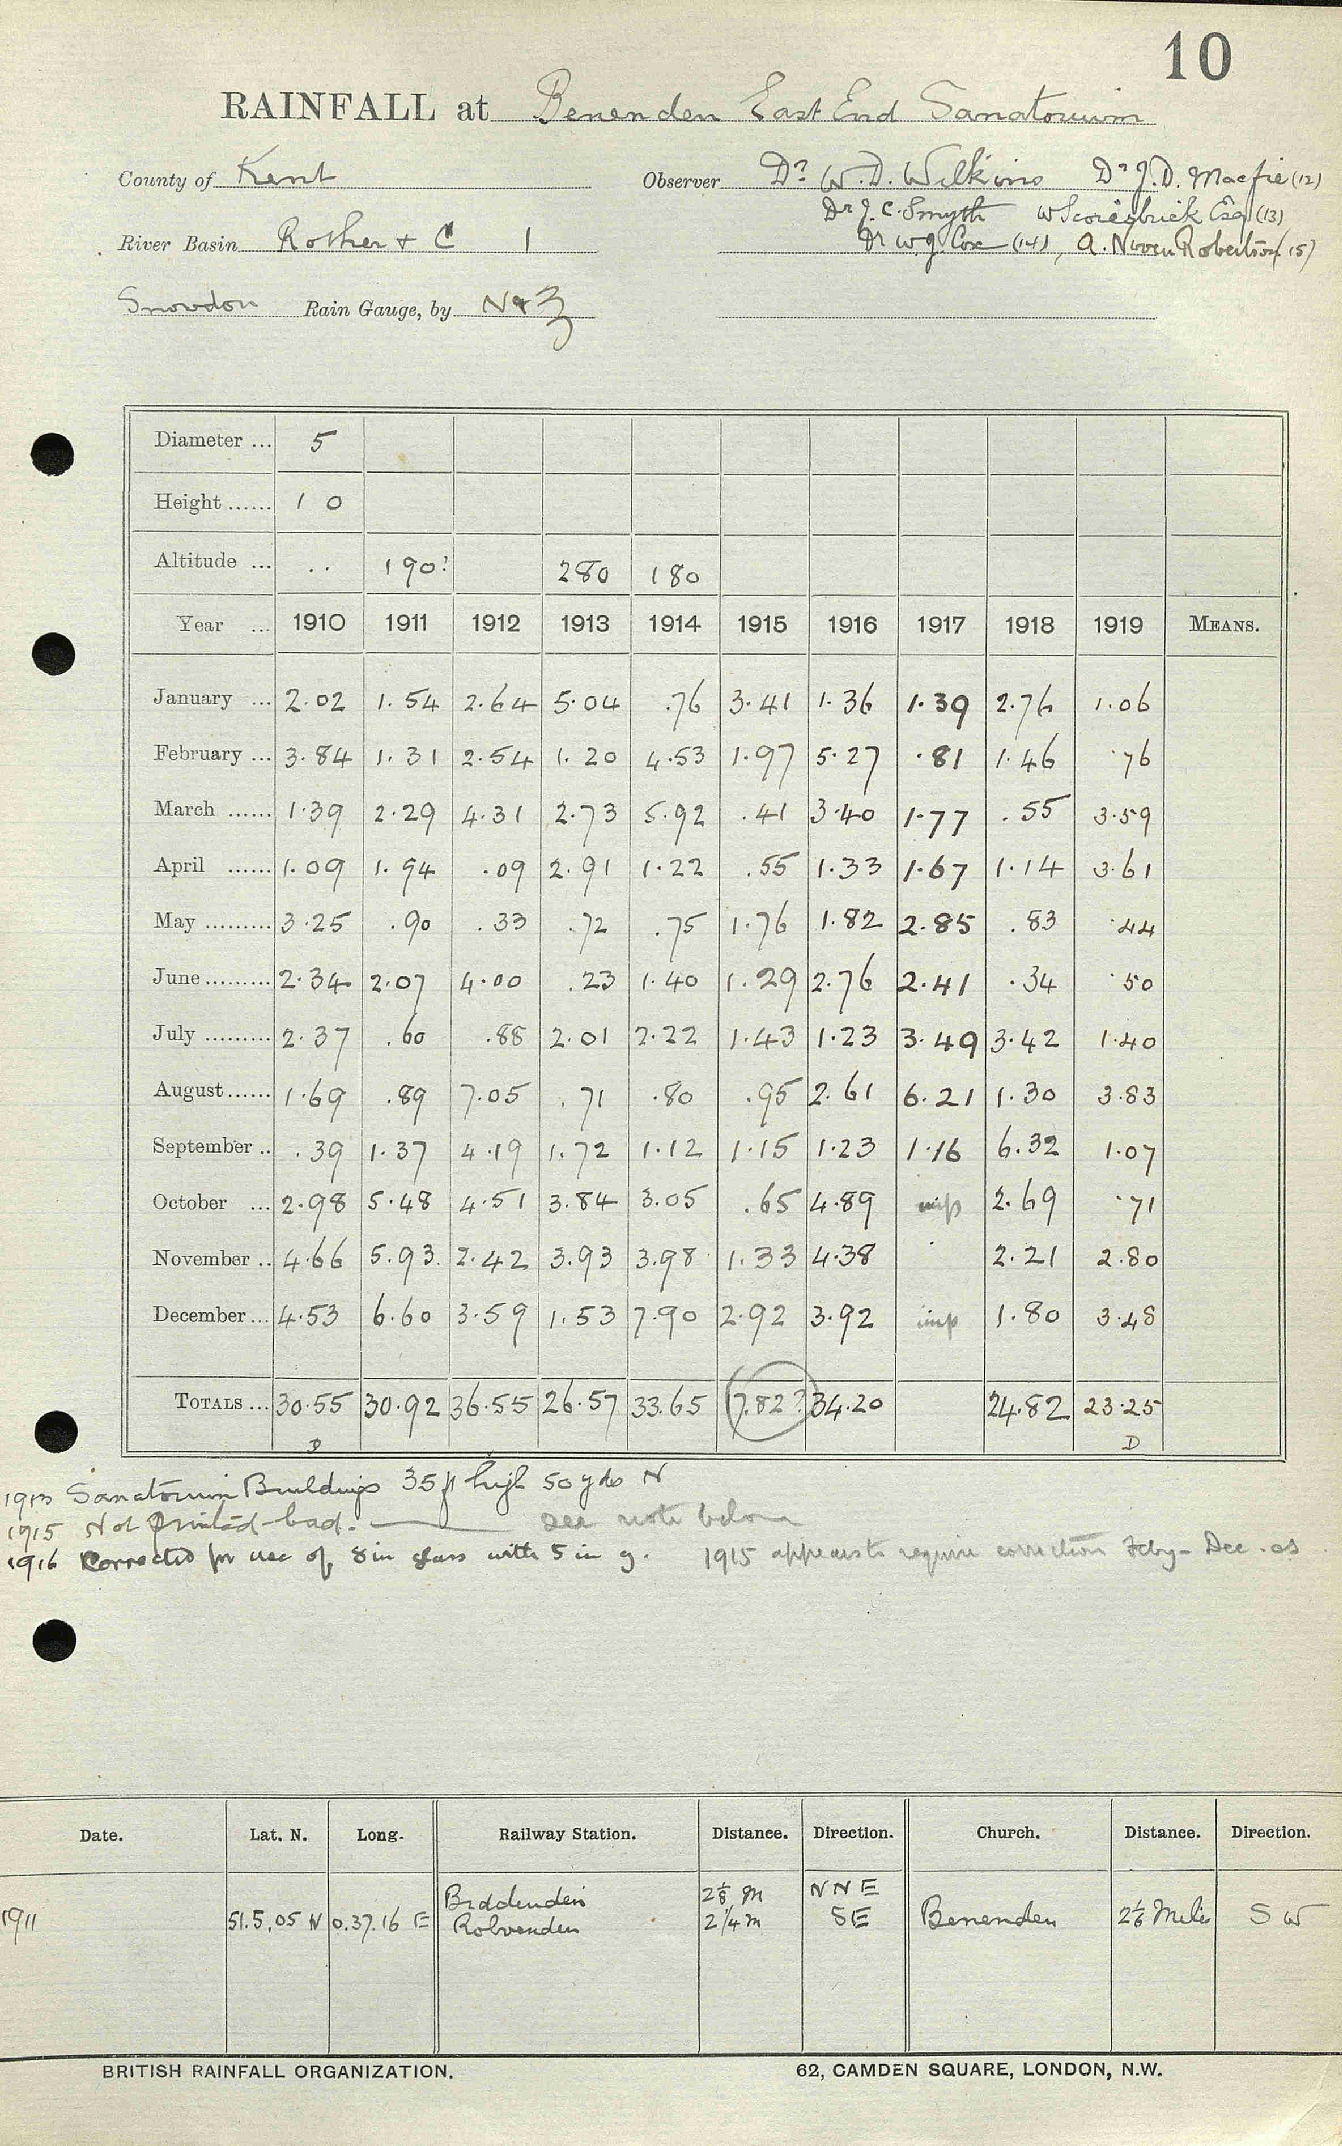 10
RAINFALL at Benenden East End Sanatorium
County of Kent Observer Dr W. D. Wilkins Dr J. D. Macfie (12)
Dr J. C. Smyth W Scoresbrick Esq (13)
River Basin Rother + C 1 Dr W. J. Cox (14), A. Niven Robertson (15)
Snowdon Rain Gauge, by N & Z
Diameter ... 5
Height ...... 1 0
Altitude ... .. 190? 280 180
Year ... 1910 1911 1912 1913 1914 1915 1916 1917 1918 1919 MEANS.
January ... 2.02 1.54 2.64 5.04 .76 3.41 1.36 1.39 2.76 1.06
February ... 3.84 1.31 2.54 1.20 4.53 1.97 5.27 .81 1.46 .76
March ...... 1.39 2.29 4.31 2.73 5.92 .41 3.40 1.77 .55 3.59
April ...... 1.09 1.94 .09 2.91 1.22 .55 1.33 1.67 1.14 3.61
May ......... 3.25 .90 .33 .72 .75 1.76 1.82 2.85 .83 .44
June ......... 2.34 2.07 4.00 .23 1.40 1.29 2.76 2.41 .34 .50
July ......... 2.37 .60 .88 2.01 2.22 1.43 1.23 3.49 3.42 1.40
August ...... 1.69 .89 7.05 .71 .80 .95 2.61 6.21 1.30 3.83
September .. .39 1.37 4.19 1.72 1.12 1.15 1.23 1.16 6.32 1.07
October ... 2.98 5.48 4.51 3.84 3.05 .65 4.89 imp 2.69 .71
November .. 4.66 5.93 2.42 3.93 3.98 1.33 4.38 2.21 2.80
December ... 4.53 6.60 3.59 1.53 7.90 2.92 3.92 imp 1.80 3.48
TOTALS ... 30.55 30.92 36.55 26.57 33.65 17.82? 34.20 24.82 23.25
D D
1913 Sanatorium Buildings 35 ft high 50 yds N
1915 Not printed - bad. see note below
1916 Corrected for use of 8 in glass with 5 in g. 1915 appears to require correction Feby - Dec. as
Date. Lat. N. Long. Railway Station. Distance. Direction. Church. Distance. Direction.
Biddenden 2 1/8 m NNE
1911 51.5.05 N 0.37.16 E Rolvenden 2 1/4 m SE Benenden 2 1/8 Miles SW
BRITISH RAINFALL ORGANIZATION. 62, CAMDEN SQUARE, LONDON, N.W.